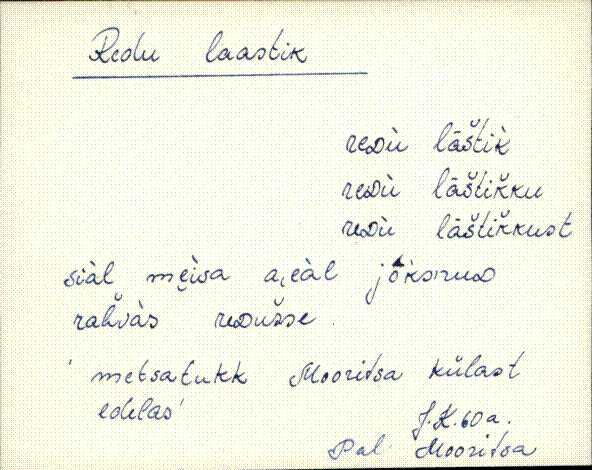 Redu laastik
reᴅù lāštìk
reᴅù lāštikku
reᴅù lāštikkust
siàl mẹìsa aeàl jòksruᴅ
rahvàs reᴅusse.
'metsatukk Mooritsa külast
edelas'
J.K. 60 a.
Pal Mooritsa